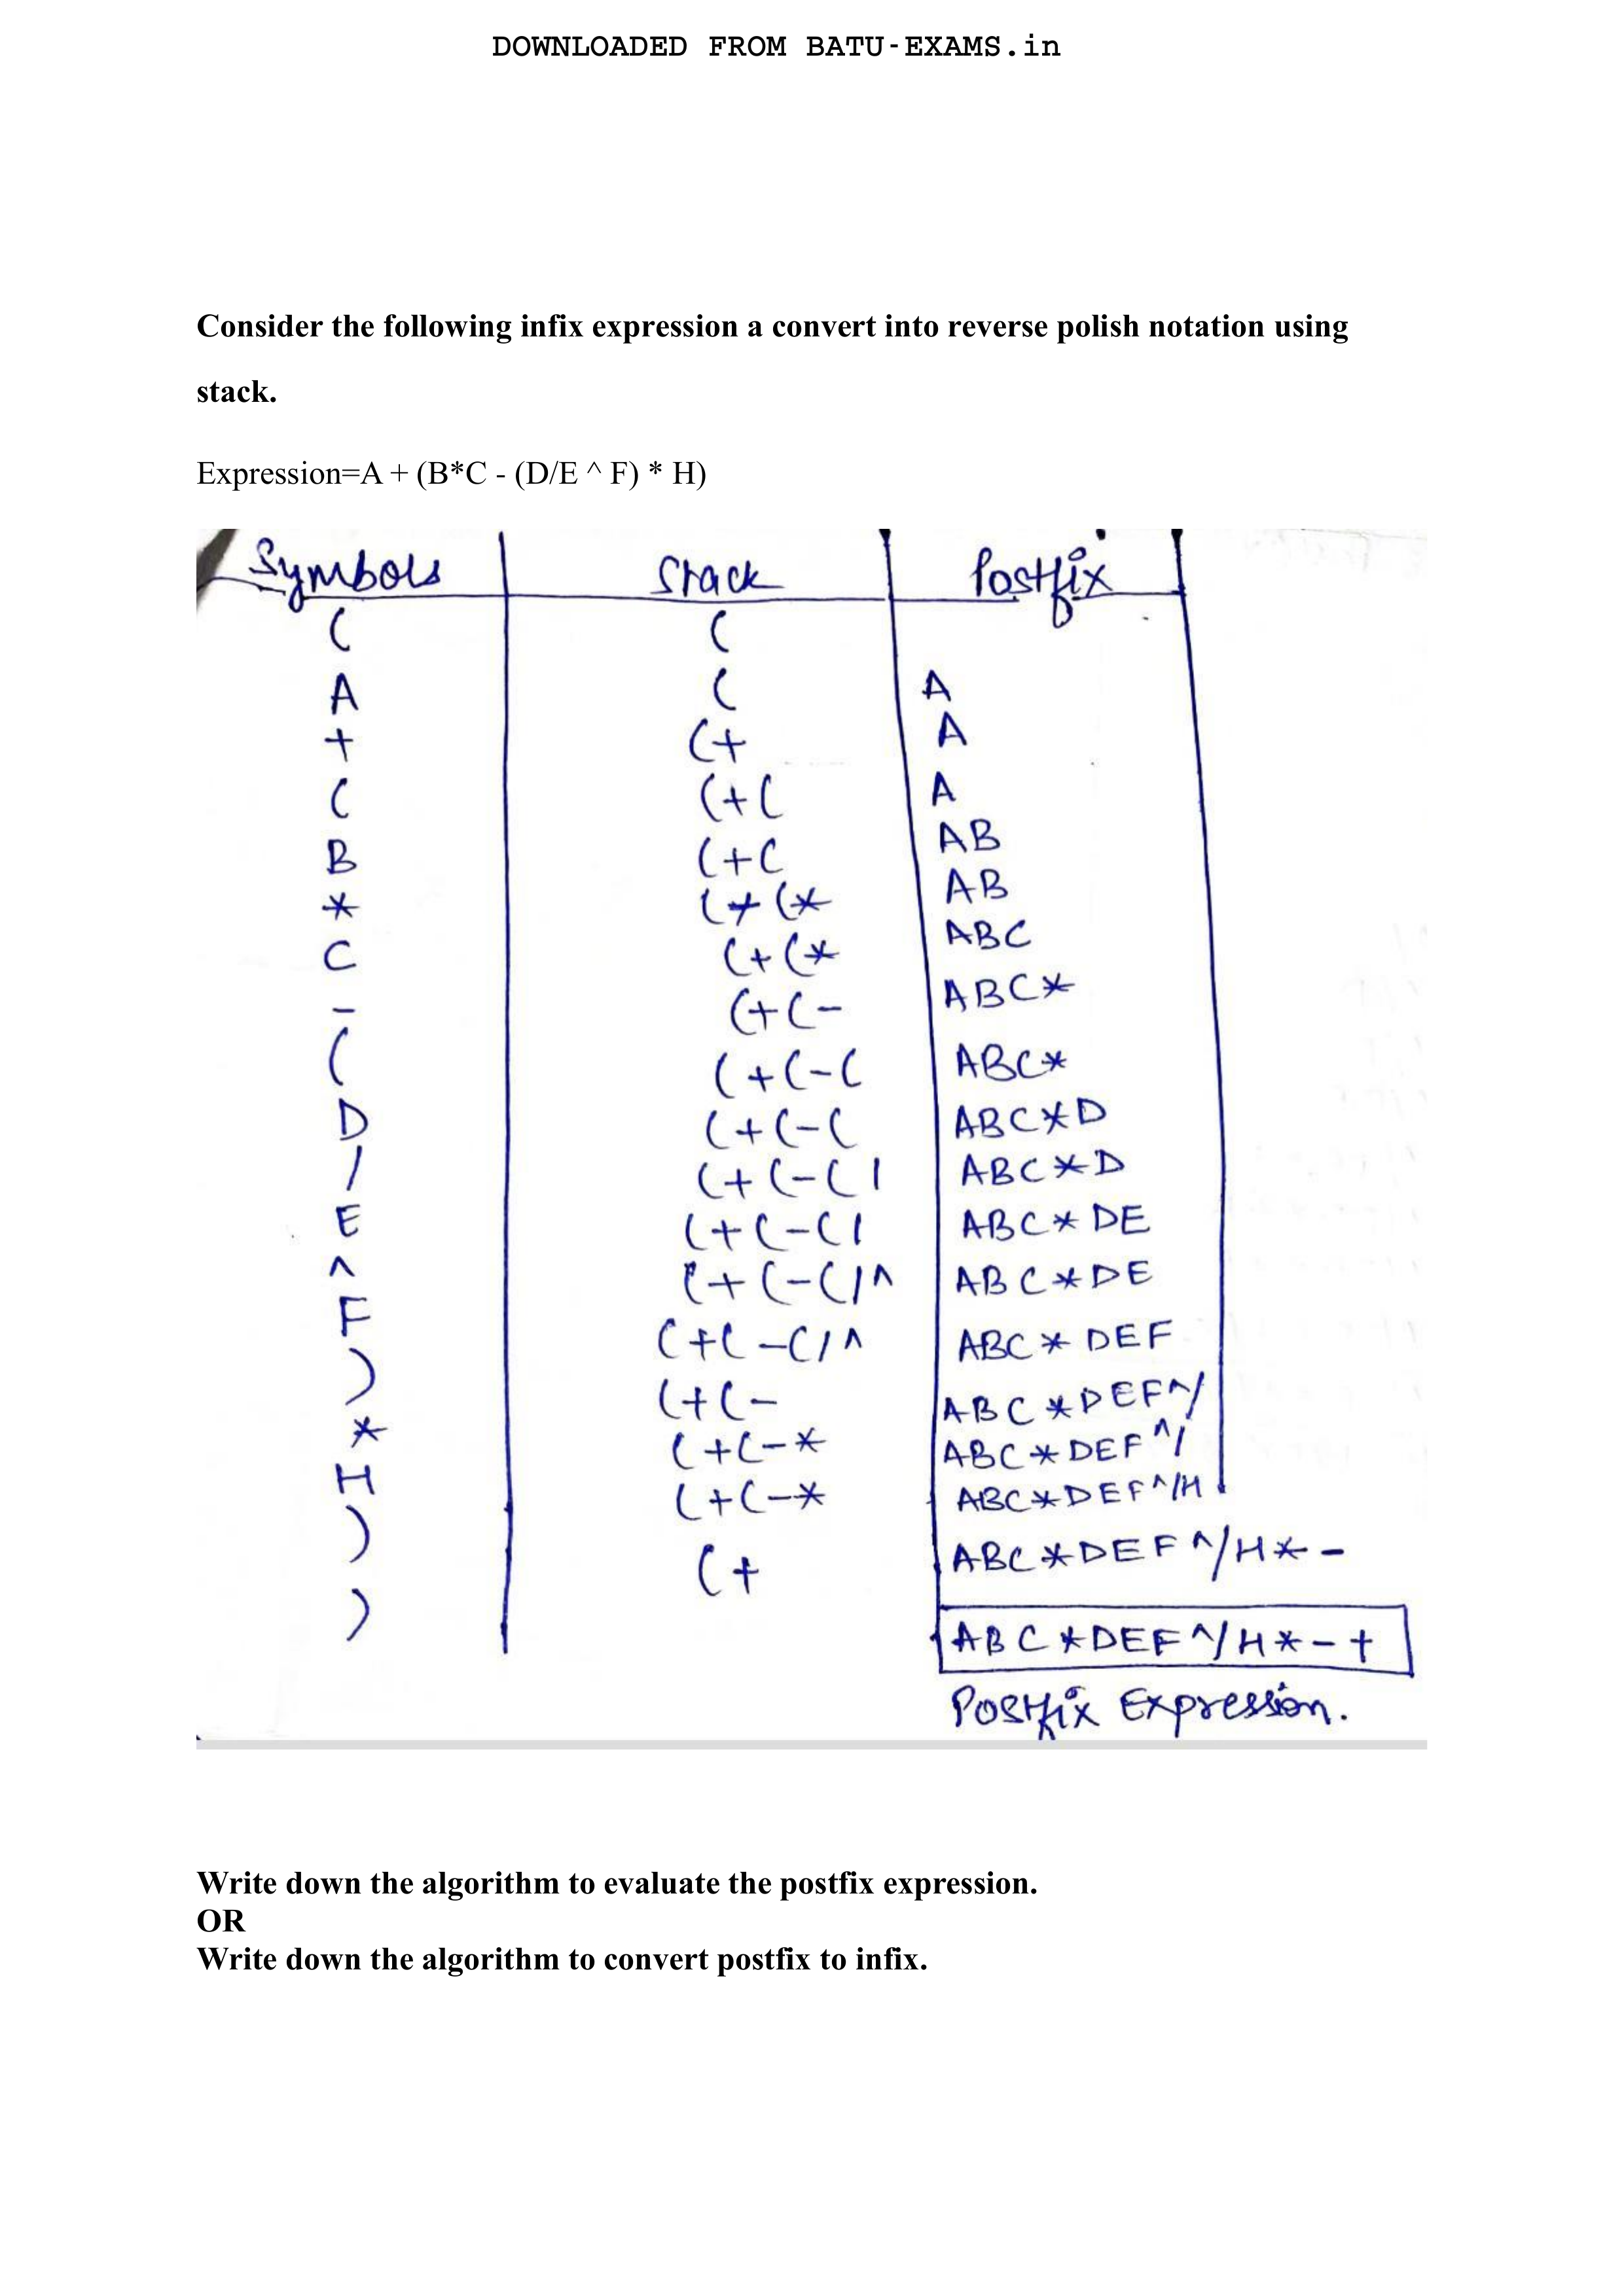 DOWNLOADED FROM BATU-EXAMS.in
Consider the following infix expression a convert into reverse polish notation using
stack.
Expression=A + (B*C - (D/E ^ F) * H)
Symbols Stack Postfix
( (
A ( A
+ (+ A
( (+( A
B (+( AB
* (+(* AB
C (+(* ABC
- (+(- ABC*
( (+(-( ABC*
D (+(-( ABC*D
/ (+(-(/ ABC*D
E (+(-(/ ABC*DE
^ (+(-(/^ ABC*DE
F (+(-(/^ ABC*DEF
) (+(- ABC*DEF^/
* (+(-* ABC*DEF^/
H (+(-* ABC*DEF^/H
) (+ ABC*DEF^/H*-
) ABC*DEF^/H*-+
Postfix Expression.
Write down the algorithm to evaluate the postfix expression.
OR
Write down the algorithm to convert postfix to infix.